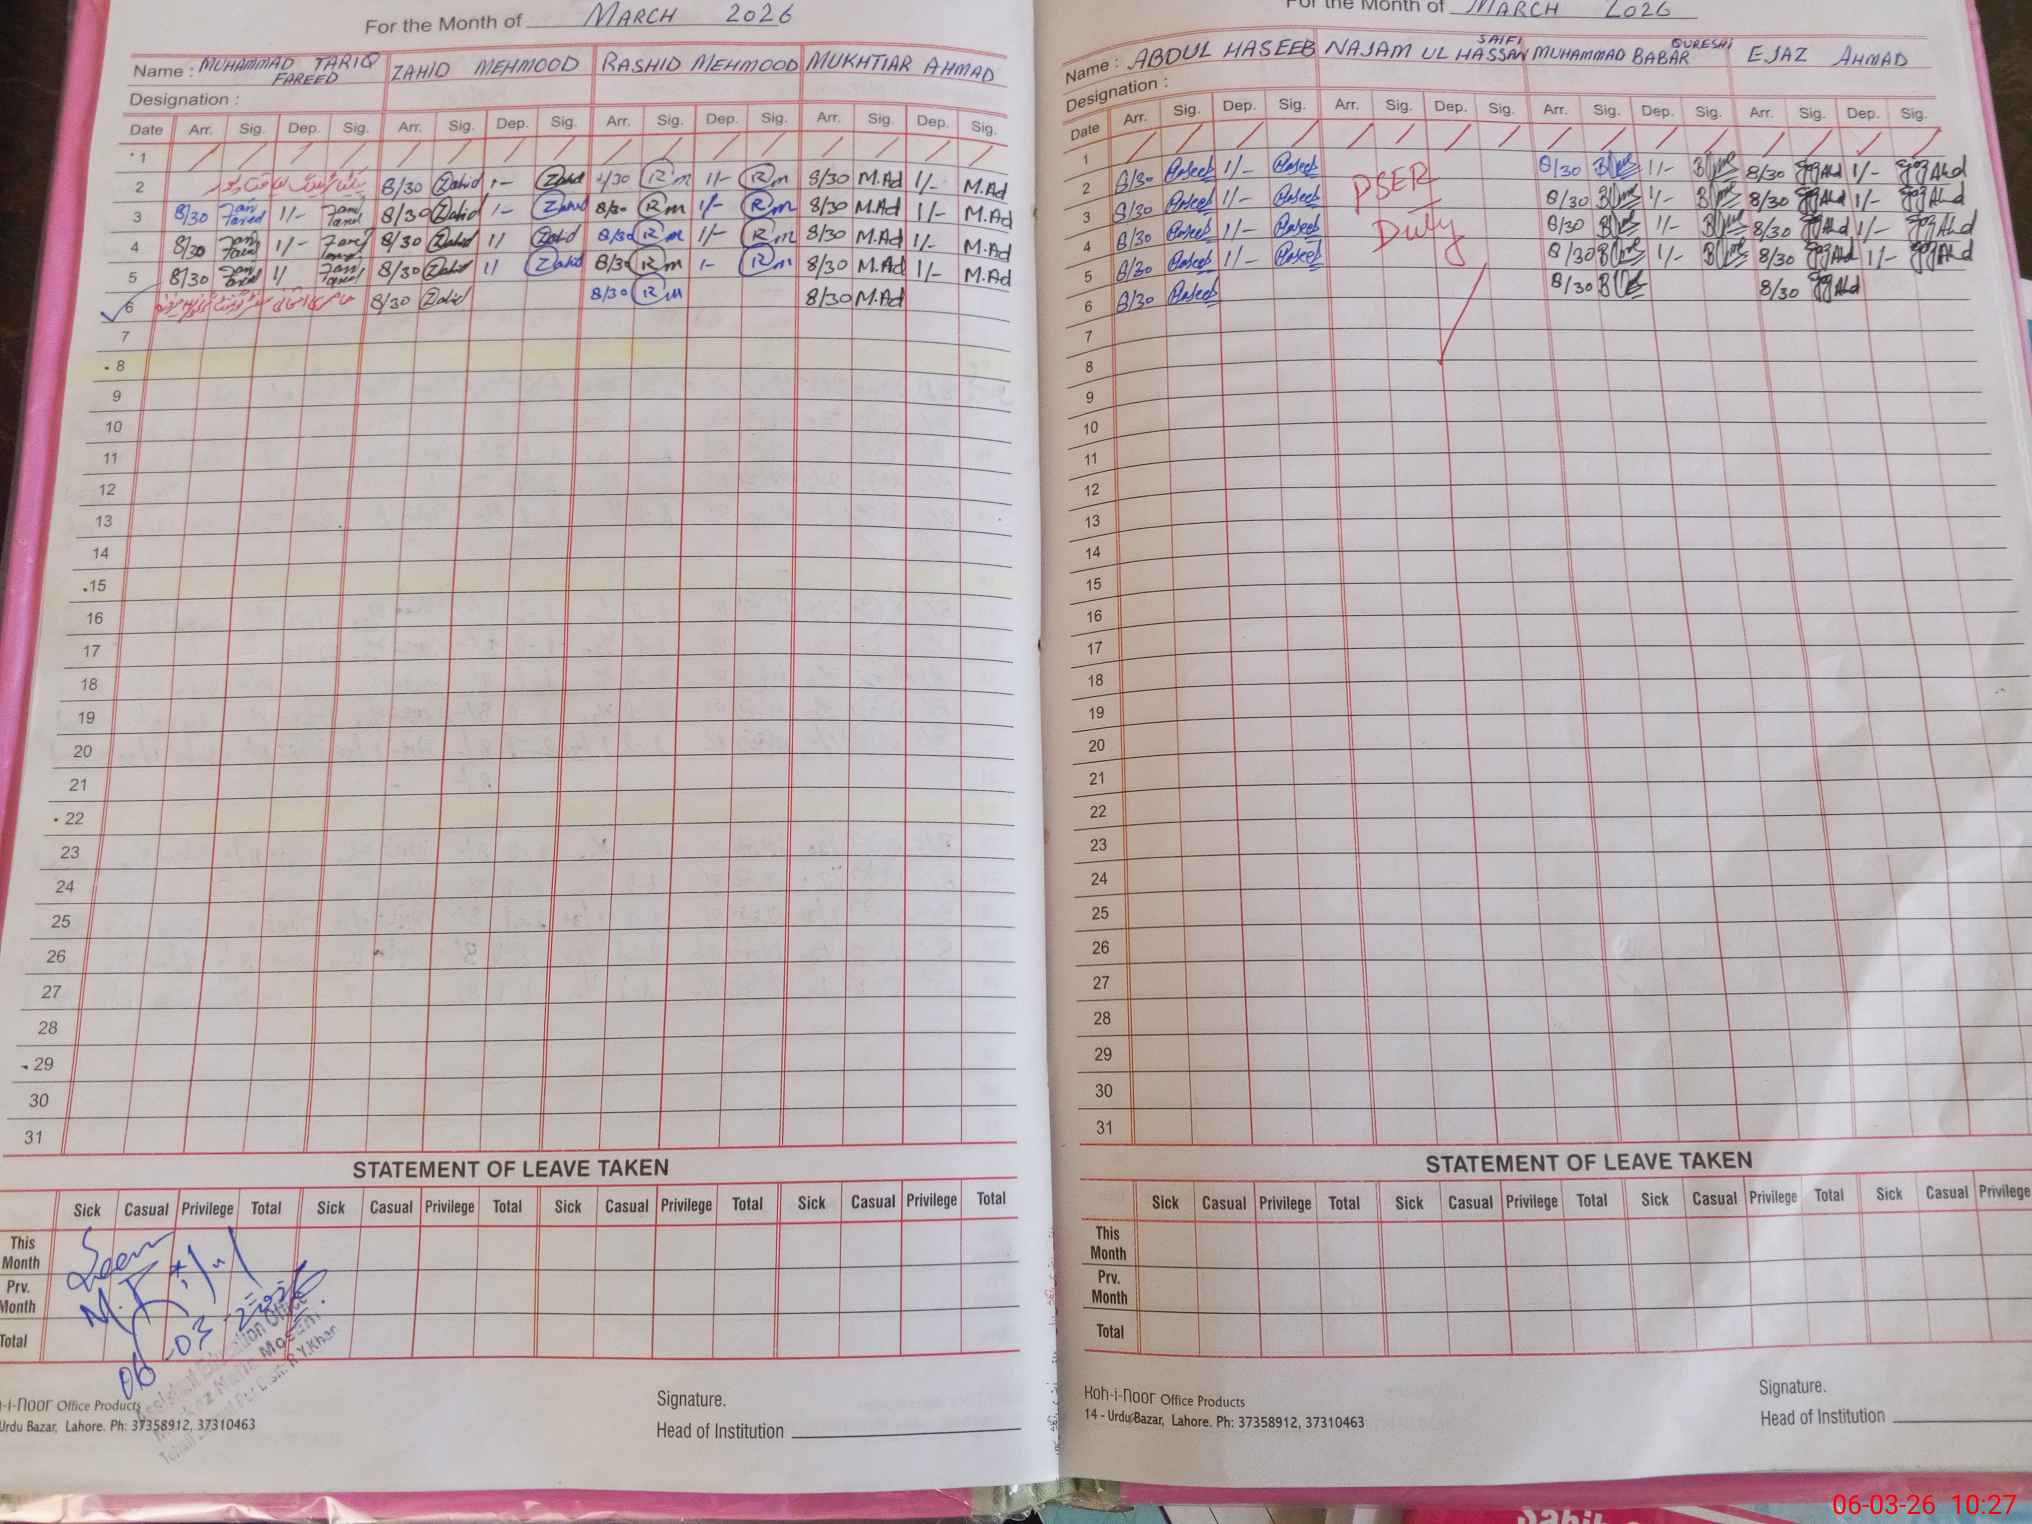 For the Month of MARCH 2026
Name : MUHAMMAD TARIQ FAREED ZAHID MEHMOOD RASHID MEHMOOD MUKHTIAR AHMAD
Designation :
Date Arr. Sig. Dep. Sig. Arr. Sig. Dep. Sig. Arr. Sig. Dep. Sig. Arr. Sig. Dep. Sig.
1
2 8/30 Zahid 1- Zahid /30 Rm 1/- Rm 8/30 M.Ad 1/- M.Ad
3 8/30 1/- 8/30 Zahid 1- Zahid 8/30 Rm 1/- Rm 8/30 M.Ad 1/- M.Ad
4 8/30 1/- 8/30 Zahid 1/ Zahid 8/30 Rm 1/- Rm 8/30 M.Ad 1/- M.Ad
5 8/30 1/ 8/30 Zahid 1/ Zahid 8/30 Rm 1- Rm 8/30 M.Ad 1/- M.Ad
6 8/30 Zahid 8/30 Rm 8/30 M.Ad
7
8
9
10
11
12
13
14
15
16
17
18
19
20
21
22
23
24
25
26
27
28
29
30
31
STATEMENT OF LEAVE TAKEN
Sick Casual Privilege Total Sick Casual Privilege Total Sick Casual Privilege Total Sick Casual Privilege Total
This Month
Prv. Month
Total
Seen
06-03-2026
Signature.
Head of Institution
-i-noor Office Products
Urdu Bazar, Lahore. Ph: 37358912, 37310463
For the Month of MARCH 2026
Name : ABDUL HASEEB NAJAM UL HASSAN SAIFI MUHAMMAD BABAR QURESHI EJAZ AHMAD
Designation :
Date Arr. Sig. Dep. Sig. Arr. Sig. Dep. Sig. Arr. Sig. Dep. Sig. Arr. Sig. Dep. Sig.
1
2 8/30 Haseeb 1/- Haseeb 8/30 1/- 8/30 1/-
3 8/30 Haseeb 1/- Haseeb 8/30 1/- 8/30 1/-
4 8/30 Haseeb 1/- Haseeb 8/30 1/- 8/30 1/-
5 8/30 Haseeb 1/- Haseeb 8/30 1/- 8/30 1/-
6 8/30 Haseeb 8/30 8/30
PSER
Duty
7
8
9
10
11
12
13
14
15
16
17
18
19
20
21
22
23
24
25
26
27
28
29
30
31
STATEMENT OF LEAVE TAKEN
Sick Casual Privilege Total Sick Casual Privilege Total Sick Casual Privilege Total Sick Casual Privilege
This Month
Prv. Month
Total
Koh-i-noor Office Products
14 - Urdu Bazar, Lahore. Ph: 37358912, 37310463
Signature.
Head of Institution
06-03-26 10:27